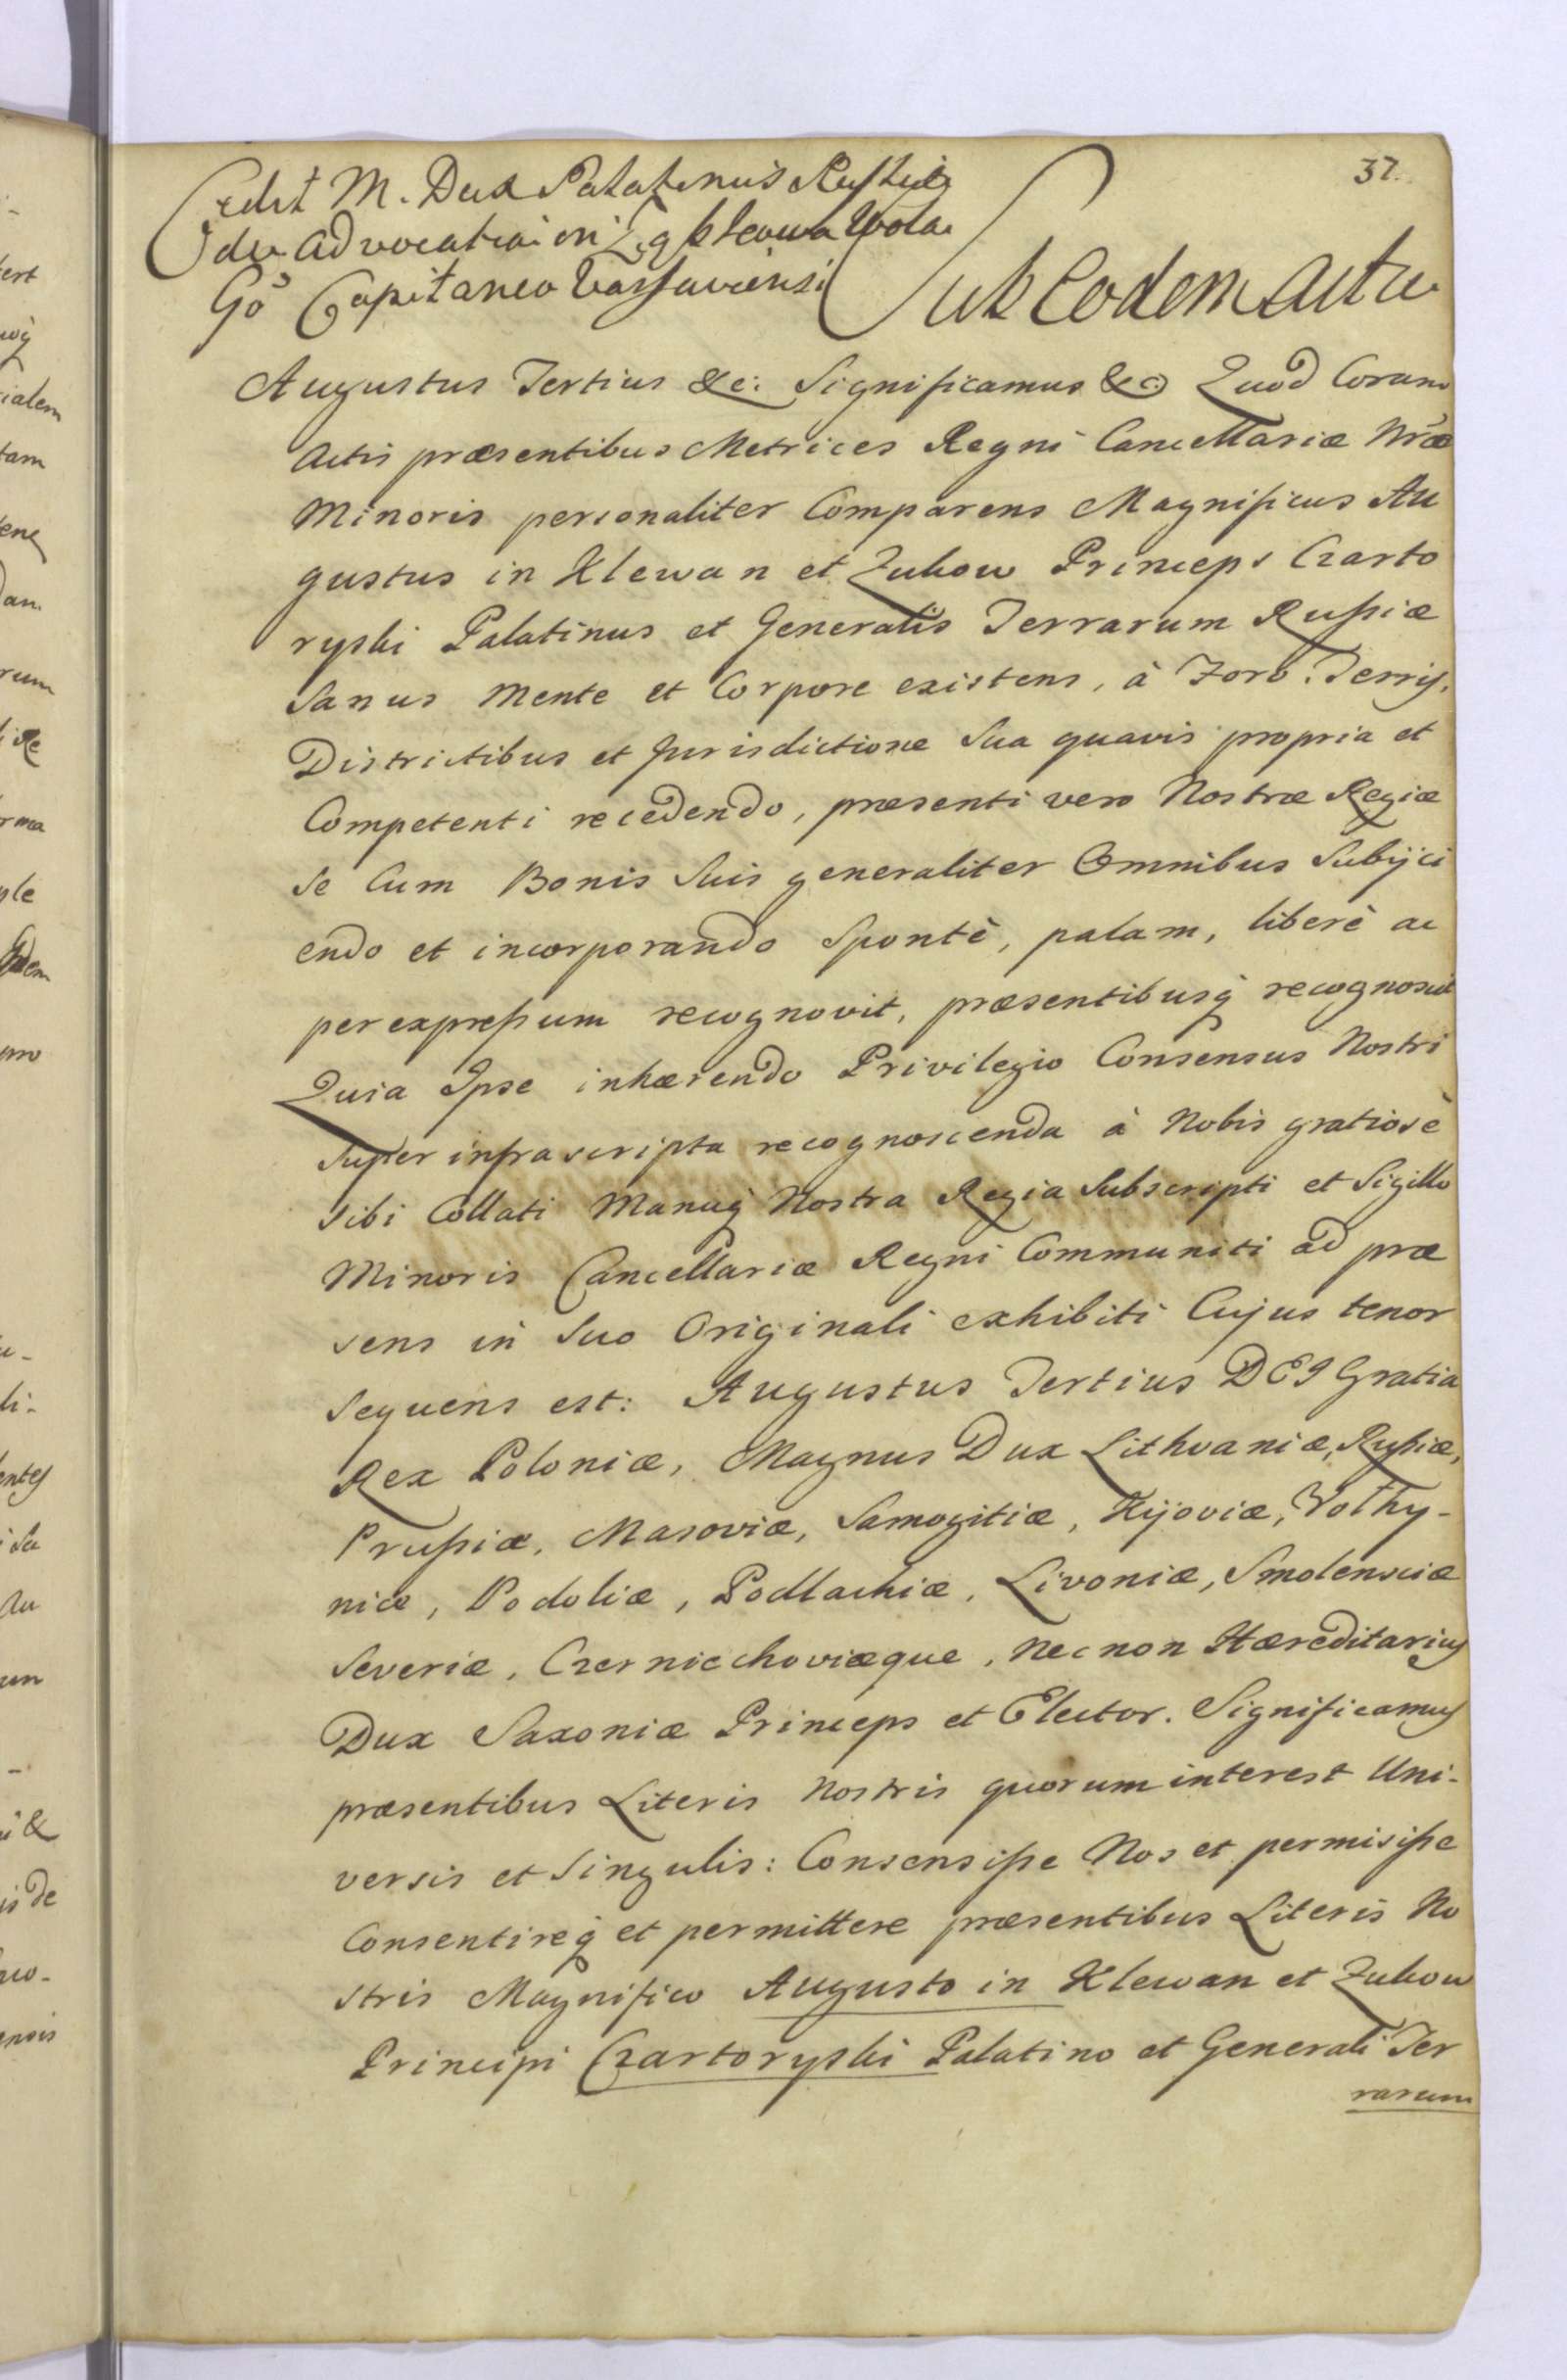 37.
Cedit M. Dux Palatinus Russiæ
de Advocatia in Wola
Gō Capitaneo Varsaviensi
Sub Eodem Actu
Augustus Tertius &c: Significamus &c: Quod Coram
Actis præsentibus Metrices Regni Cancellariæ Nræ
Minoris personaliter Comparens Magnificus Au
gustus in Klewan et Zukow Princeps Czarto
ryski Palatinus et Generalis Terrarum Rußiæ
Sanus Mente et Corpore existens, à Foro. Terris,
Districtibus et Jurisdictione Sua quavis propria et
Competenti recedendo, præsenti vero Nostræ Regiæ
se Cum Bonis Suis generaliter Omnibus Subijci
endo et incorporando Spontè, palam, liberè ac
per expreßum recognovit, præsentibusq̀ recognoscit
Quia Ipse inhærendo Privilegio Consensus Nostri
Super infrascripta recognoscenda à Nobis gratiosè
sibi Collati Manuq̀ Nostra Regia Subscripti et Sigillo
Minoris Cancellariæ Regni Communiti ad præ
sens in Suo Originali exhibiti Cujus tenor
Sequens est: Augustus Tertius DEI Gratia
Rex Poloniæ, Magnus Dux Lithvaniæ, Rußiæ,
Prußiæ, Masoviæ, Samogitiæ, Kijoviæ, Volhy-
niæ, Podoliæ, Podlachiæ, Livoniæ, Smolensciæ
Severiæ, Czerniechoviæque, Nec non Hæreditarius
Dux Saxoniæ Princeps et Elector. Significamus
præsentibus Literis Nostris quorum interest Uni-
versis et Singulis: Consensiße Nos et permisiße
Consentireq̀ et permittere præsentibus Literis No
stris Magnifico Augusto in Klewan et Zukow
Principi Czartoryski Palatino et Generali Ter
rarum